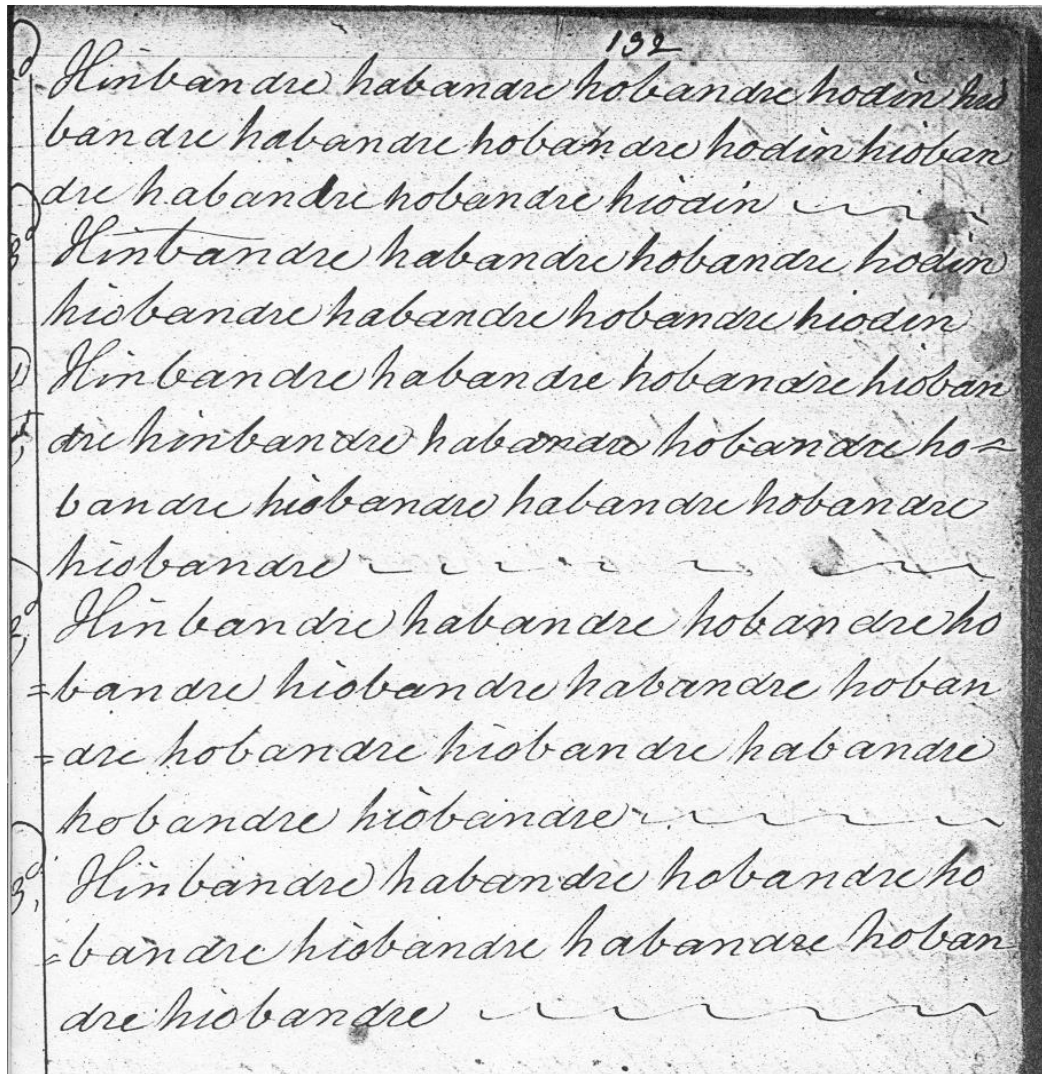 132
Hinbandre habandre hobandre hodin hio
bandre habandre hobandre hodin hioban
dre habandre hobandre hiodin
3d Hinbandre habandre hobandre hodin
hiobandre habandre hobandre hiodin
Hinbandre habandre hobandre hioban
dre hinbandre habandre hobandre ho=
bandre hiobandre habandre hobandre
hiobandre
2, Hinbandre habandre hobandre ho
=bandre hiobandre habandre hoban
=dre hobandre hiobandre habandre
hobandre hiobandre
3, Hinbandre habandre hobandre ho
=bandre hiobandre habandre hoban-
dre hiobandre